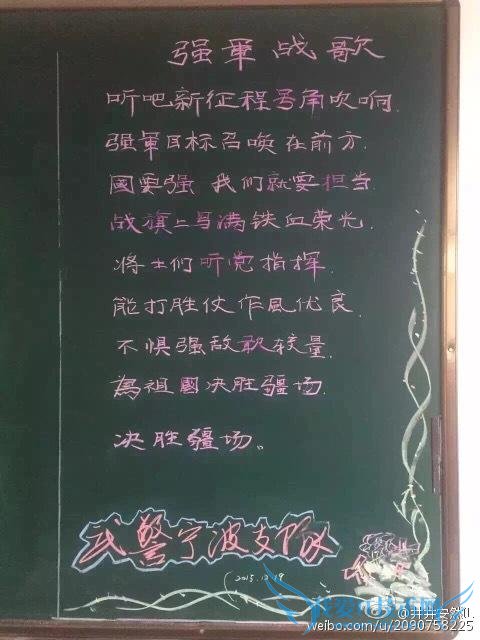 强軍战歌
听吧新征程号角吹响.
强軍目标召唤在前方.
國要强 我们就要担当
战旗上写满铁血荣光.
将士们听党指挥.
能打胜仗作風优良.
不惧强敌敢较量.
為祖國决胜疆场.
决胜疆场。
武警宁波支队
2015.12.19
weibo.com/u/2090758225